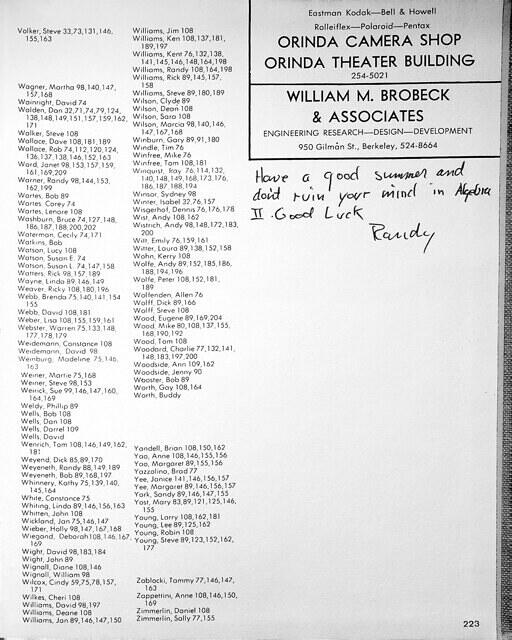 Volker, Steve 33,73,131,146,
155,163
Wagner, Martha 98,140,147,
157,168
Wainright, David 74
Walden, Dan 32,71,74,79,124,
138,148,149,151,157,159,162,
171
Walker, Steve 108
Wallace, Dave 108,181,189
Wallace, Rob 74,112,120,124,
136,137,138,146,152,163
Ward, Janet 98,153,157,159,
161,169,209
Warner, Randy 98,144,153,
162,199
Wartes, Bob 89
Wartes, Corey 74
Wartes, Lenore 108
Washburn, Bruce 74,127,148,
186,187,188,200,202
Waterman, Cecily 74,171
Watkins, Bob
Watson, Lucy 108
Watson, Susan E. 74
Watson, Susan L. 74,147,158
Watters, Rick 98,157,189
Wayne, Linda 89,146,149
Weaver, Ricky 108,180,196
Webb, Brenda 75,140,141,154
155
Webb, David 108,181
Weber, Lisa 108,155,159,161
Webster, Warren 75,133,148,
177,178,179
Weidemann, Constance 108
Weidemann, David 98
Weinburg, Madeline 75,146,
163
Weiner, Martie 75,168
Weiner, Steve 98,153
Weirick, Sue 99,146,147,160,
164,169
Weldy, Phillip 89
Wells, Bob 108
Wells, Dan 108
Wells, Darrel 109
Wells, David
Wenrich, Tom 108,146,149,162,
181
Weyend, Dick 85,89,170
Weyeneth, Randy 88,149,189
Weyeneth, Bob 89,168,197
Whinnery, Kathy 75,139,140,
145,164
White, Constance 75
Whiting, Linda 89,146,156,163
Whitten, John 108
Wickland, Jan 75,146,147
Wieber, Holly 98,147,167,168
Wiegand, Deborah 108,146,167,
169
Wight, David 98,183,184
Wight, John 89
Wignall, Diane 108,146
Wignall, William 98
Wilcox, Cindy 59,75,78,157,
171
Wilkes, Cheri 108
Williams, David 98,197
Williams, Deane 108
Williams, Jan 89,146,147,150
Williams, Jim 108
Williams, Ken 108,137,181,
189,197
Williams, Kent 76,132,138,
141,145,146,148,164,198
Williams, Randy 108,164,198
Williams, Rick 89,145,157,
158
Williams, Steve 89,180,189
Wilson, Clyde 89
Wilson, Dean 108
Wilson, Sara 108
Wilson, Marcia 98,140,146,
147,167,168
Winburn, Gary 89,91,180
Windle, Tim 76
Winfree, Mike 76
Winfree, Tom 108,181
Winquist, Ray 76,114,132,
140,148,149,168,173,176,
186,187,188,194
Winsor, Sydney 98
Winter, Isabel 32,76,157
Wisgerhof, Dennis 76,176,178
Wist, Andy 108,162
Wistrich, Andy 98,148,172,183,
200
Witt, Emily 76,159,161
Witter, Laura 89,138,152,158
Wohn, Kerry 108
Wolfe, Andy 89,152,185,186,
188,194,196
Wolfe, Peter 108,152,181,
189
Wolfenden, Allen 76
Wolff, Dick 89,166
Wolff, Steve 108
Wood, Eugene 89,169,204
Wood, Mike 80,108,137,155,
168,190,192
Wood, Tom 108
Woodard, Charlie 77,132,141,
148,183,197,200
Woodside, Ann 109,162
Woodside, Jenny 90
Wooster, Bob 89
Worth, Gay 108,164
Worth, Buddy
Yandell, Brian 108,150,162
Yao, Anne 108,146,155,156
Yao, Margaret 89,155,156
Yazzolino, Brad 77
Yee, Janice 141,146,156,157
Yee, Margaret 89,146,156,157
York, Sandy 89,146,147,155
Yost, Mary 83,89,121,125,146,
155
Young, Larry 108,162,181
Young, Lee 89,125,162
Young, Robin 108
Young, Steve 89,123,152,162,
177
Zablocki, Tammy 77,146,147,
163
Zappettini, Anne 108,146,150,
169
Zimmerlin, Daniel 108
Zimmerlin, Sally 77,155
Eastman Kodak—Bell & Howell
Rolleiflex—Polaroid—Pentax
ORINDA CAMERA SHOP
ORINDA THEATER BUILDING
254-5021
WILLIAM M. BROBECK
& ASSOCIATES
ENGINEERING RESEARCH—DESIGN—DEVELOPMENT
950 Gilman St., Berkeley, 524-8664
Have a good summer and
don't ruin your mind in Algebra
II. Good Luck
Randy
223